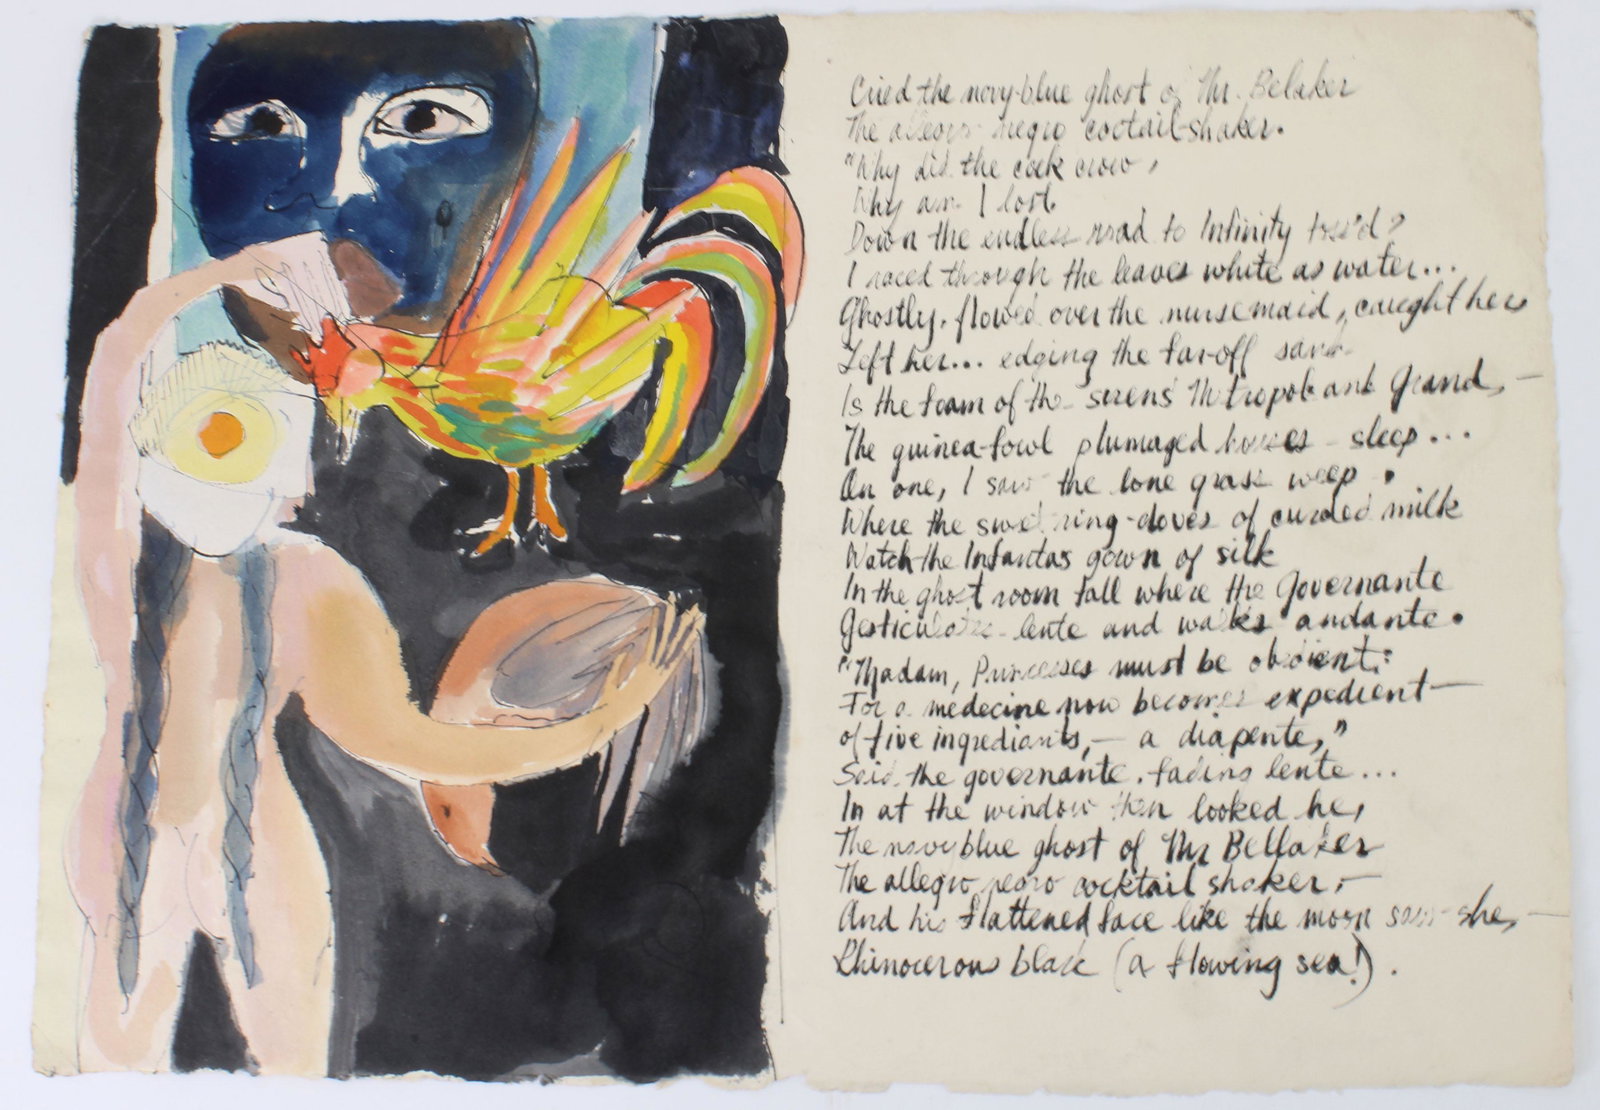 Cried the navy-blue ghost of Mr. Belaker
The allegro negro coctail-shaker.
"Why did the cock crow,
Why am I lost
Down the endless road to Infinity toss'd?
I raced through the leaves white as water...
Ghostly, flowed over the nursemaid, caught her
Left her... edging the far-off sand
Is the foam of the sirens Mitropole and Grand,—
The guinea-fowl plumaged houses sleep...
On one, I saw the lone grass weep.
Where the swe ring-doves of curded milk
Watch the Infantas gown of silk
In the ghost room tall where the Governante
Gesticulates lente and walks andante.
"Madam, Princesses must be obedient:
For a medecine now becomes expedient—
of five ingrediants,— a diapente,"
Said the governante, fading lente...
In at the window then looked he,
The navy blue ghost of Mr Bellaker
The allegro negro cocktail shaker,—
And his flattened face like the moon saw she,—
Rhinocerous black (a flowing sea!).